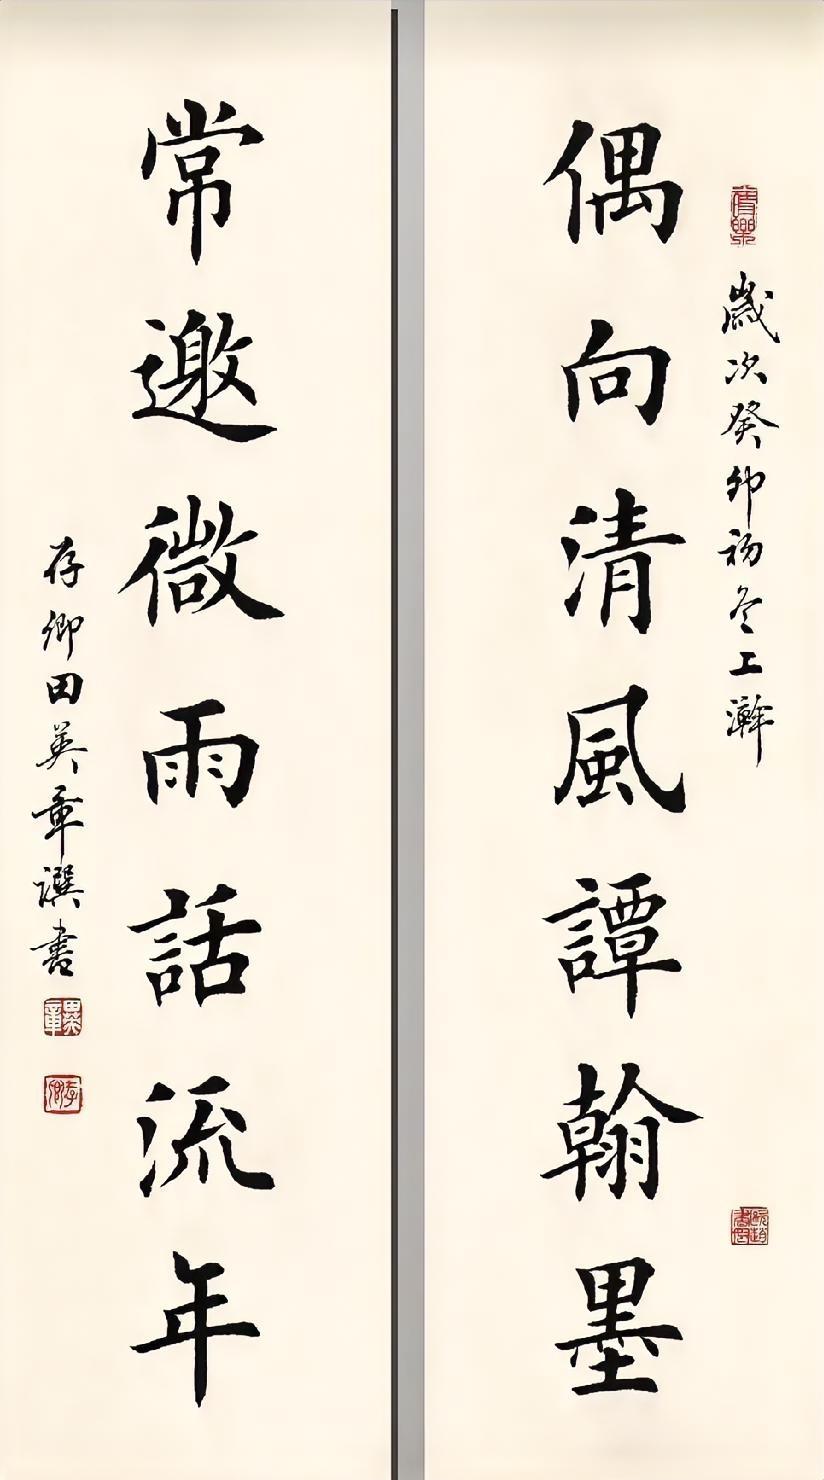 歲次癸卯初冬上澣
偶向清風譚翰墨
常邀微雨話流年
存卿田英章譔書